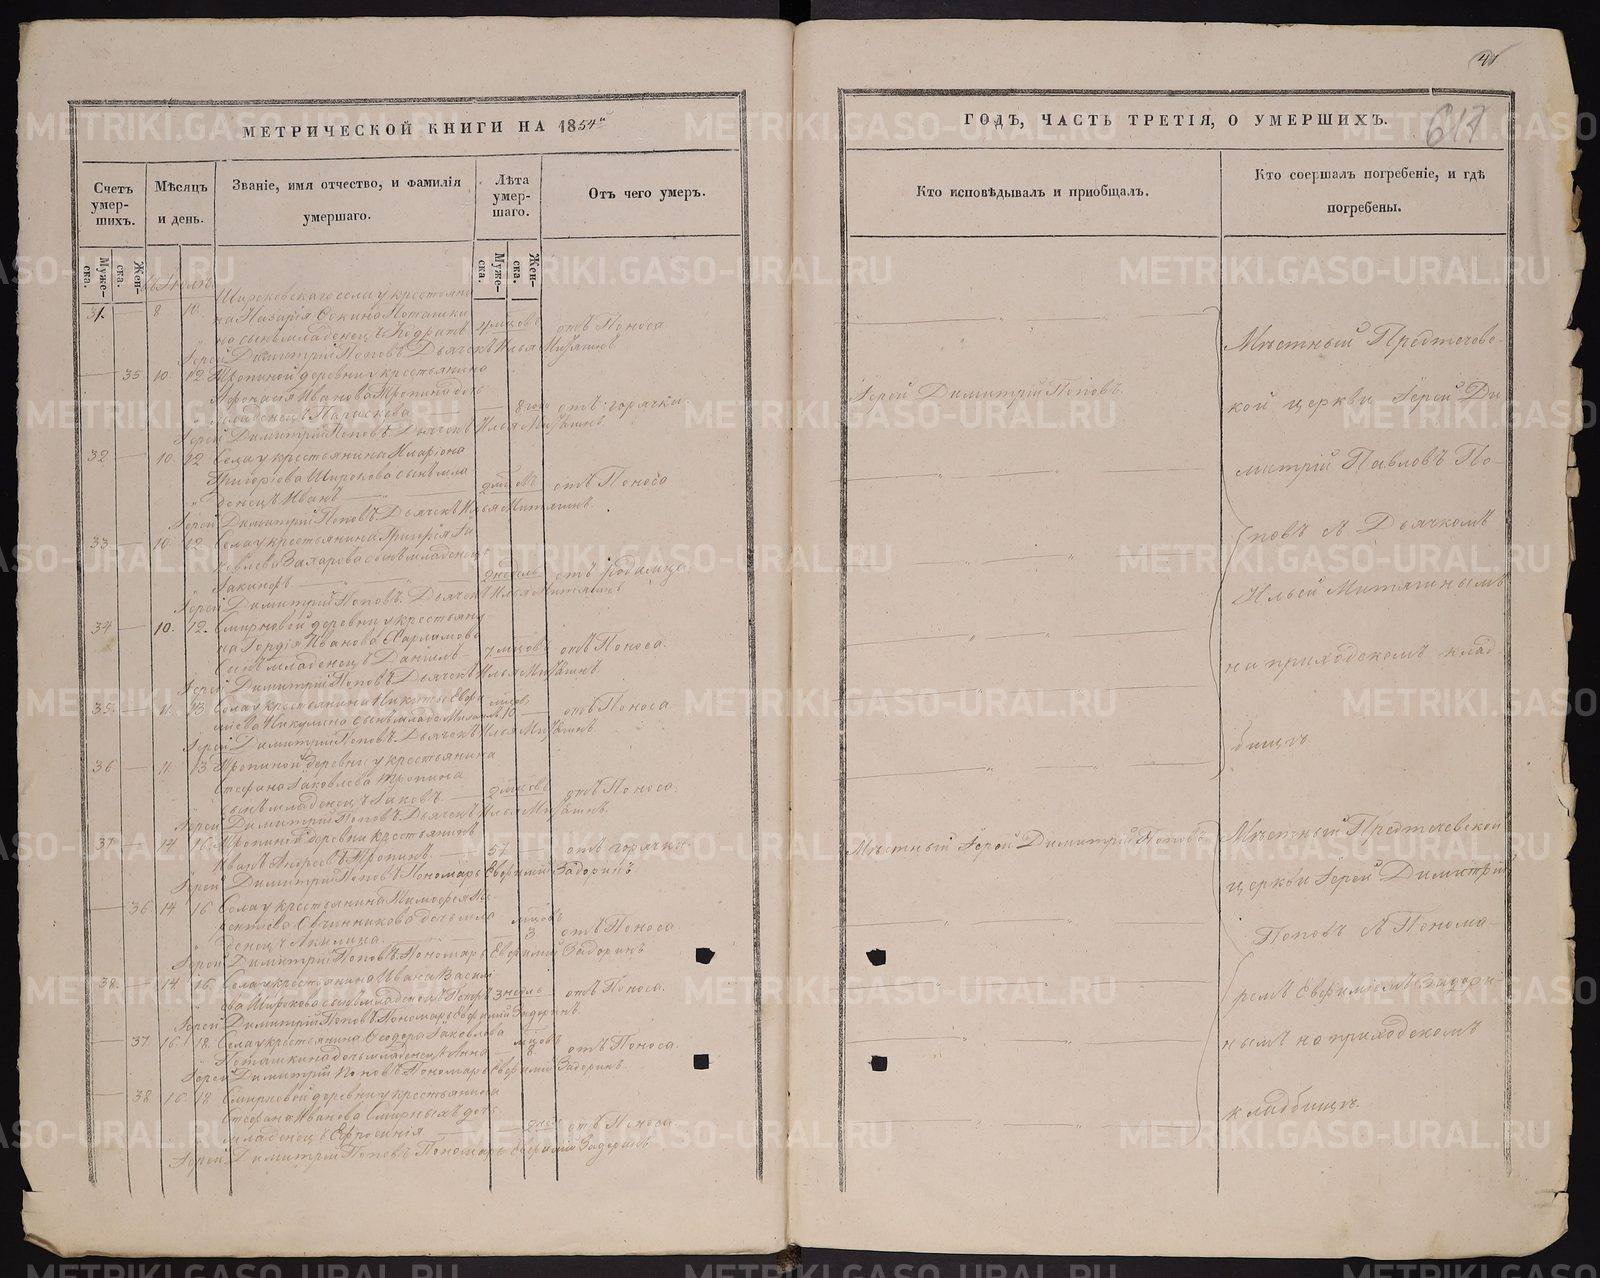 МЕТРИЧЕСКОЙ КНИГИ НА 1854й
Счетъ умер- шихъ.
Мѣсяцъ и день.
Званіе, имя отчество, и фамилія умершаго.
Лѣта умер- шаго.
Отъ чего умеръ.
Муже- ска.
Жен- ска.
Муже- ска.
Жен- ска.
31. 8 10. Широковскаго села у крестьяни
на Назарія
на сынъ младенецъ 4 мцовъ отъ Поноса
Іерей Димитрій Поповъ. Дьячекъ Илья Митягинъ
35 10. 12 Тропиной деревни у крестьянина
Афонасія Иванова Тропина дочь
младенецъ Параскева 8 отъ горячки.
Іерей Димитрій Поповъ. Дьячекъ Илья Митягинъ
32 10. 12 Села у крестьянина Иларіона
Григорьева Широкова сынъ мла
денецъ Иванъ 2 мцовъ отъ Поноса
Іерей Димитрій Поповъ. Дьячекъ Илья Митягинъ.
33 10. 12. Села у крестьянина Григорія Іа
ковлева Захарова сынъ младенецъ
Іакинфъ 2 недель отъ Родимца
Іерей Димитрій Поповъ. Дьячекъ Илья Митягинъ
34 10. 12. Смирновой деревни у крестьяни
на Гордія Иванова
Сынъ младенецъ Даніилъ 7 мцовъ отъ Поноса.
Іерей Димитрій Поповъ. Дьячекъ Илья Митягинъ
35. 11. 13 Села у крестьянина Никиты мцовъ
Никулина сынъ млад. 10 отъ Поноса
Іерей Димитрій Поповъ. Дьячекъ Илья Митягинъ
36 11. 13 Тропиной деревни у крестьянина
Стефана Іаковлева Тропина
сынъ младенецъ Іаковъ. 2 мцовъ отъ Поноса.
Іерей Димитрій Поповъ. Дьячекъ Илья Митягинъ.
37 14 16 Тропиной деревни крестьянинъ
Иванъ Андреевъ Тропинъ. 57 отъ горячки.
Іерей Димитрій Поповъ. Пономарь Евфимій Задоринъ
36 14 16 Села у крестьянина Тимофея
Овчинникова дочь мла мцовъ
денецъ Акилина. 3 отъ Поноса
Іерей Димитрій Поповъ. Пономарь Евфимій Задоринъ
38. 14 16 Села у крестьянина Ивана Василь
ева Широкова сынъ младенецъ Петръ 3 недель отъ Поноса.
Іерей Димитрій Поповъ. Пономарь Евфимій Задоринъ.
37. 16. 18. Села у крестьянина Феодора Іаковлева мцовъ
Поташкина дочь младенецъ Анна 8 отъ Поноса.
Іерей Димитрій Поповъ. Пономарь Евфимій Задоринъ.
38 16 18 Смирновой деревни у крестьянина
Стефана Иванова Смирныхъ дочь
младенецъ Ефросинія отъ Поноса.
Іерей Димитрій Поповъ. Пономарь Евфимій Задоринъ
617
ГОДЪ, ЧАСТЬ ТРЕТІЯ, О УМЕРШИХЪ.
Кто исповѣдывалъ и приобщалъ.
Кто соершалъ погребеніе, и гдѣ погребены.
Іерей Димитрій Поповъ
Мѣстный Іерей Димитрій Поповъ
Мѣстный Предтечевс-
кой церкви Іерей Ди
митрій Павловъ По-
повъ съ Дьячкомъ
Ильей Митягинымъ
на приходскомъ клад-
бищѣ
Мѣстный Предтечевской
церкви Іерей Димитрій
Поповъ съ Понома-
ремъ Евфиміемъ Задори-
нымъ на приходскомъ
кладбищѣ.
METRIKI.GASO-URAL.RU